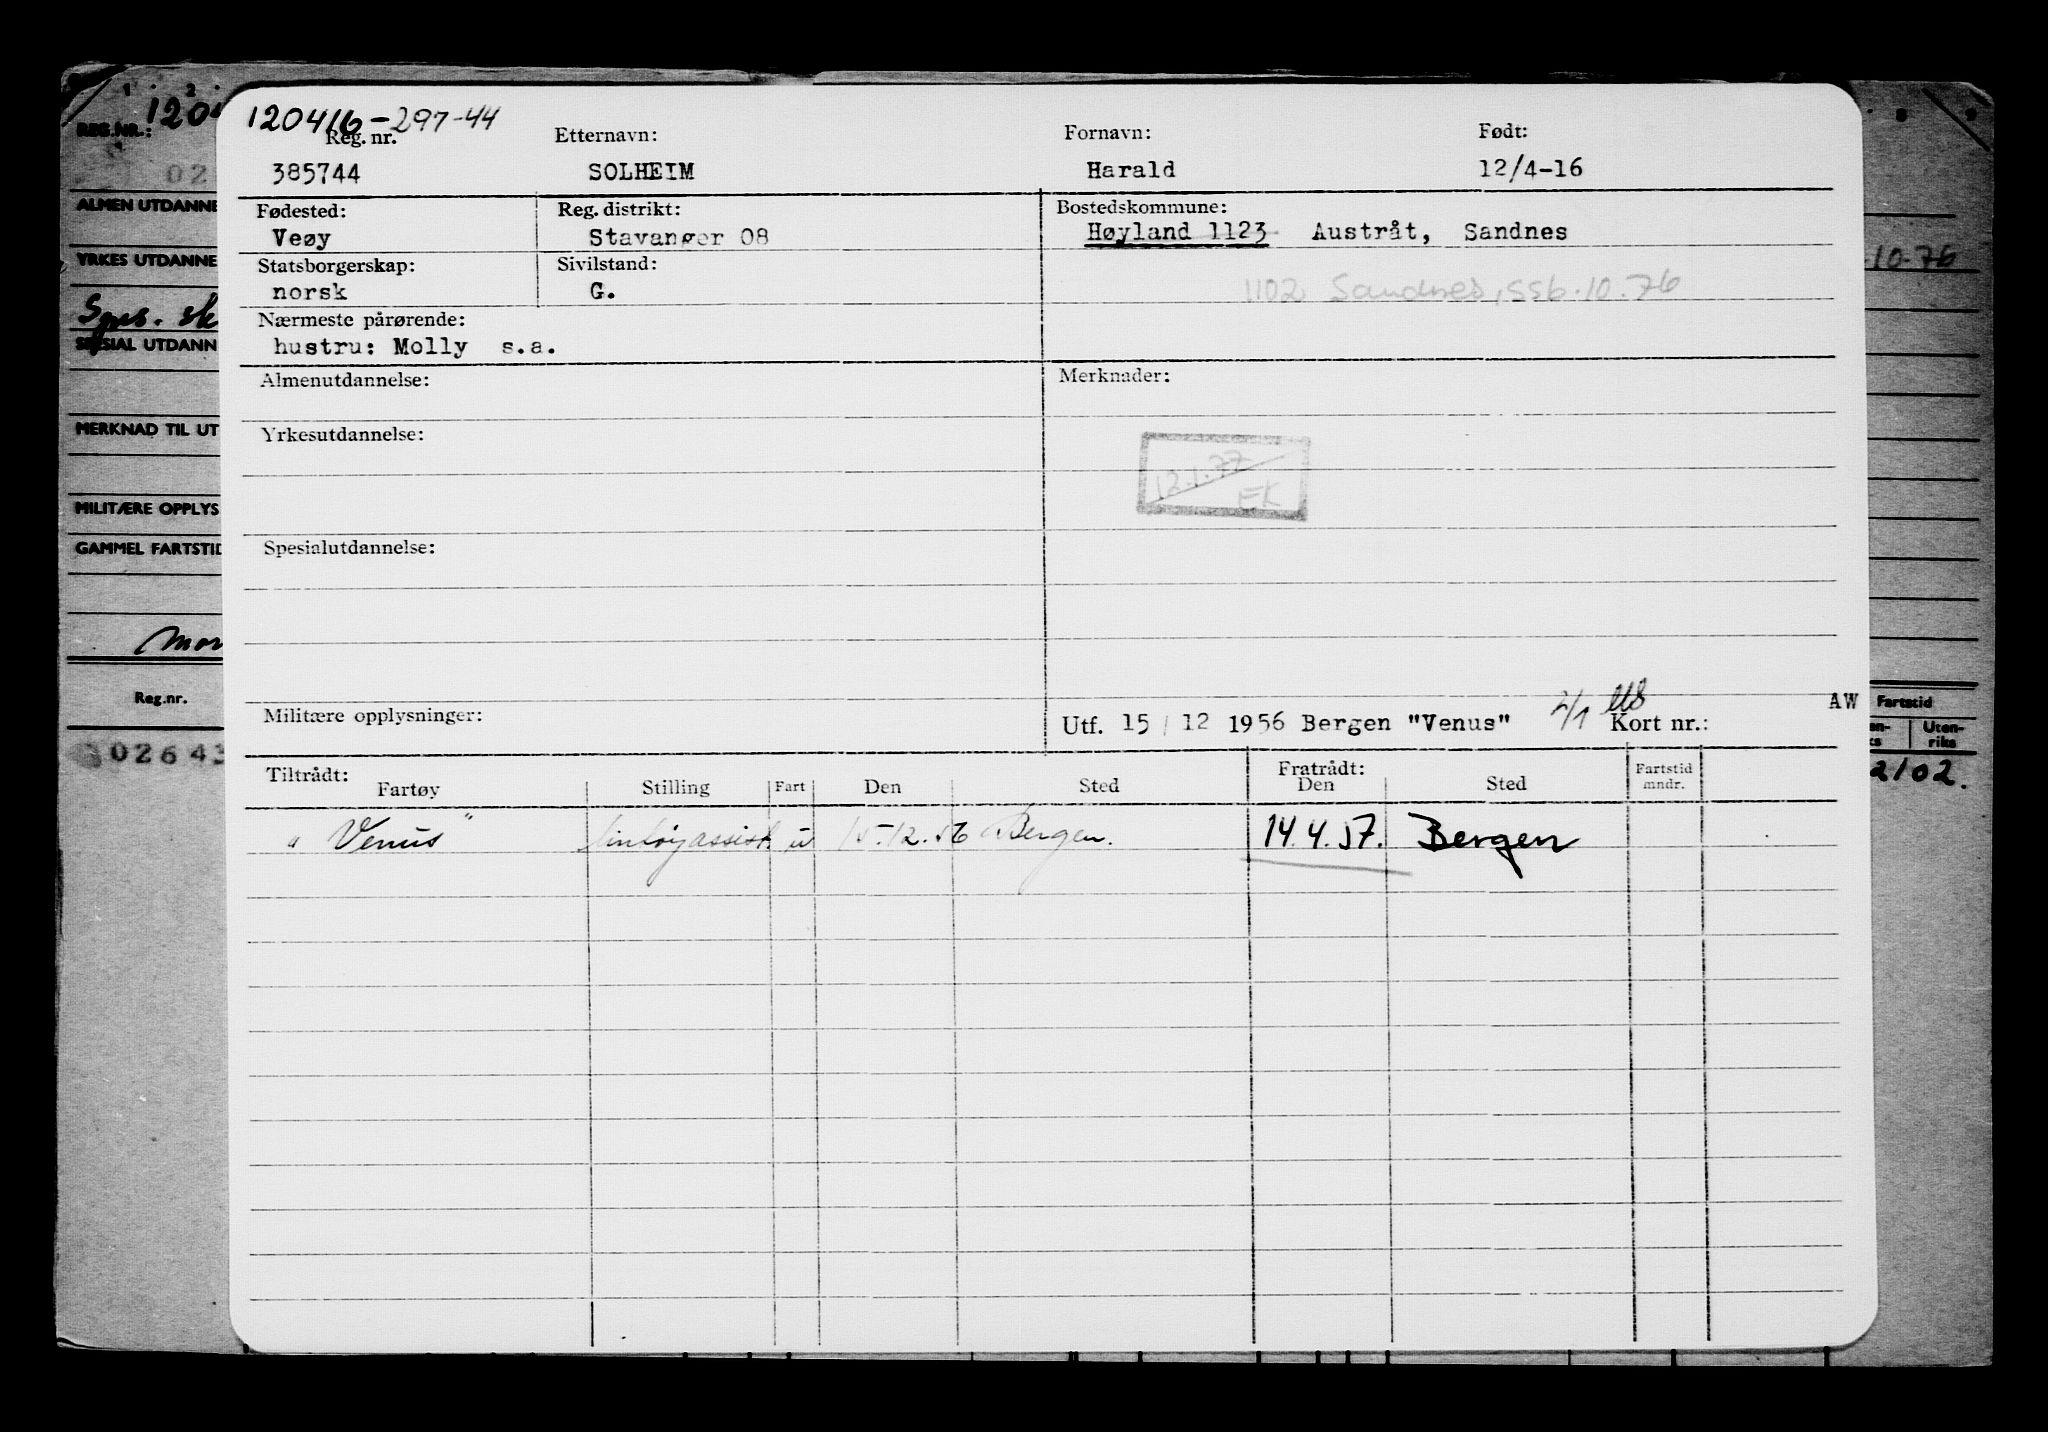 1 2 8 9
REG.NR.: 120
120416-297-44
Reg. nr. Etternavn: Fornavn: Født:
385744 SOLHEIM Harald 12/4-16
02
ALMEN UTDANNE
Fødested: Reg. distrikt: Bostedskommune:
Veøy Stavanger 08 Høyland 1123 Austråt, Sandnes
YRKES UTDANNE
10-76
Statsborgerskap: Sivilstand:
norsk G.
1102 Sandnes, ssb.10.76
Nærmeste pårørende:
hustru: Molly s.a.
SPESIAL UTDANN
Almenutdannelse: Merknader:
MERKNAD TIL UT
Yrkesutdannelse:
12.1.77
EK
MILITÆRE OPPLYS
GAMMEL FARTSTID
Spesialutdannelse:
Reg.nr.
Militære opplysninger: Utf. 15 / 12 1956 Bergen "Venus" 2/1 Kort nr.: AW
Fartstid
Uten-
riks
02643
2102.
Tiltrådt: Fratrådt: Fartstid
Fartøy Stilling Fart Den Sted Den Sted mndr.
"Venus" lintøyassist u 15.12.56 Bergen. 14.4.57. Bergen